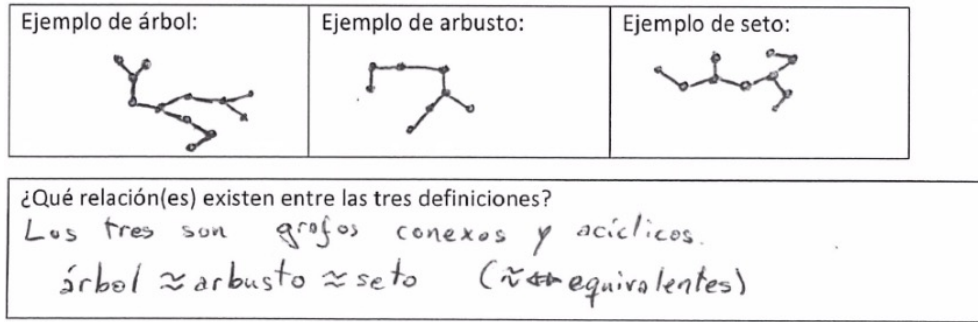 Ejemplo de árbol:
Ejemplo de arbusto:
Ejemplo de seto:
¿Qué relación(es) existen entre las tres definiciones?
Los tres son grafos conexos y acíclicos.
árbol ≈ arbusto ≈ seto (≈ equivalentes)